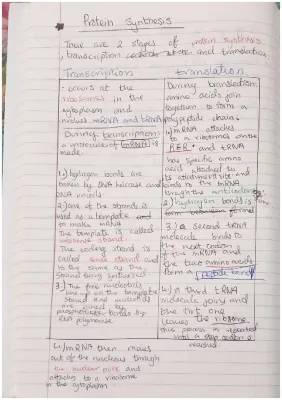 Protein synthesis
There are 2 stages of protein synthesis
, transcription and translation
Transcription
- occurs at the
ribosomes in the
cytoplasm and
involves mRNA and tRNA
During transcription
a molecule of mRNA is
made
1.) hydrogen bonds are
broken by DNA helicase and
DNA unwinds
2.) one of the strands is
used as a template
to make mRNA
The template is called
antisense strand
The coding strand is
called sense strand and
is the same as the
strand being synthesised
3.) The free nucleotides
line up on the template
strand and nucleotides
are joined by
phosphodiester bonds by
RNA polymerase
4.) mRNA then moves
out of the nucleus through
the nuclear pore and
attaches to a ribosome
in the cytoplasm
translation
During translation,
amino acids join
together to form a
polypeptide chain.
1.) mRNA attaches
to a ribosome on the
R.E.R. and tRNA
has specific amino
acid attached to
its attachment site and
binds to the mRNA
through the anticodon
2.) hydrogen bond is
formed
3.) a second tRNA
molecule binds to
the next codon
of the mRNA and
the two amino acids
form a peptide bond
4.) A third tRNA
molecule joins and
the first one
leaves the ribosome.
this process is repeated
until a stop codon is
reached.